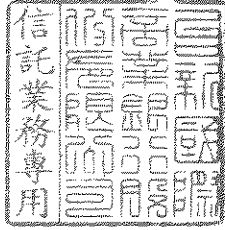 台新國際
商業銀行股
份有限公司
信託業務專用